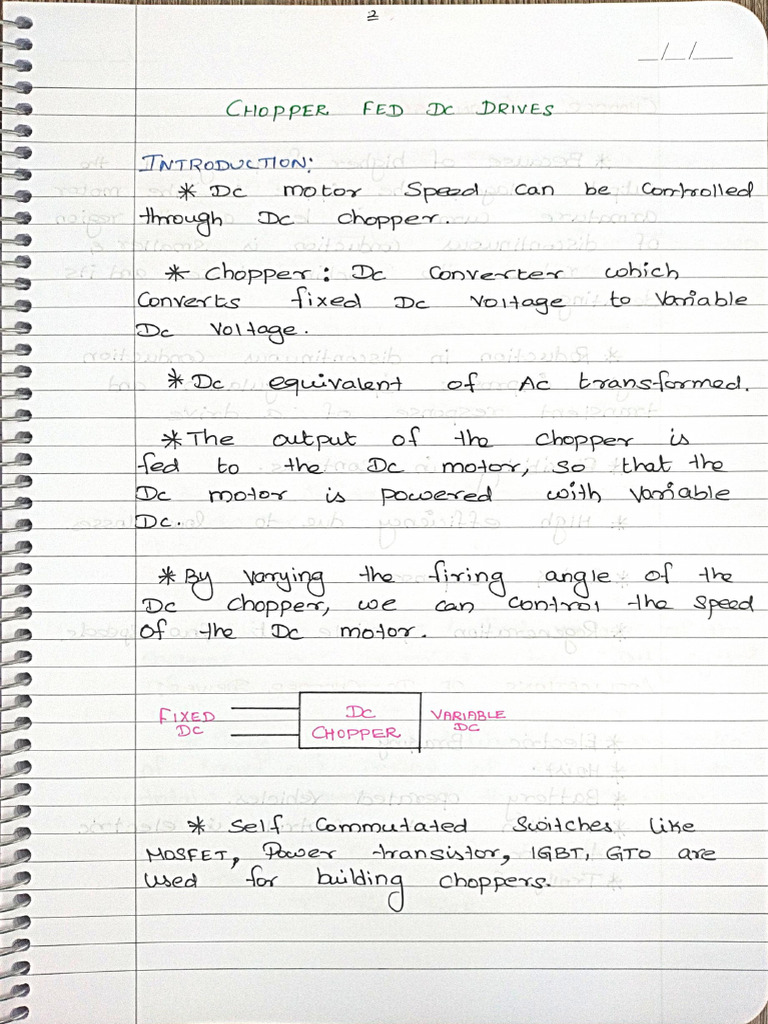 2
_/_/__
CHOPPER FED DC DRIVES
INTRODUCTION:
* DC motor Speed can be Controlled
through DC chopper.
* Chopper: DC Converter which
Converts fixed DC Voltage to Variable
DC Voltage.
* DC equivalent of AC transformed.
* The output of the chopper is
fed to the DC motor, so that the
DC motor is powered with Variable
DC.
* By varying the firing angle of the
DC Chopper, we can control the speed
of the DC motor.
FIXED DC
DC CHOPPER
VARIABLE DC
* Self Commutated Switches like
MOSFET, Power transistor, IGBT, GTO are
used for building choppers.